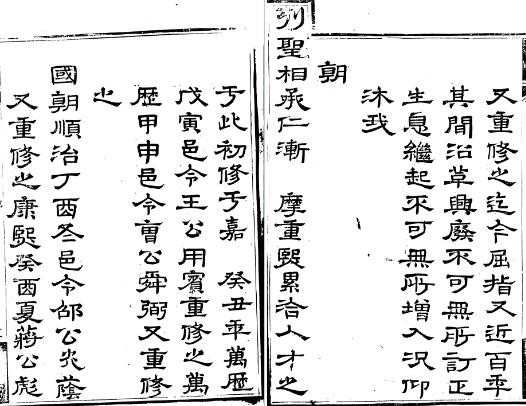 于此初修于嘉 癸丑年萬歷
戊寅邑令王公用賓重修之萬
歷甲申邑令曹公舜弼又重修
之
國朝順治丁酉冬邑令公蔭
又重修之康熙癸酉夏蔣公彪
又重修之迄今屈指又近百年
其間沿革興廢不可無所訂正
生息繼起不可無所增入況仰
沐我
朝
列聖相承仁漸 摩重熙累洽人才之